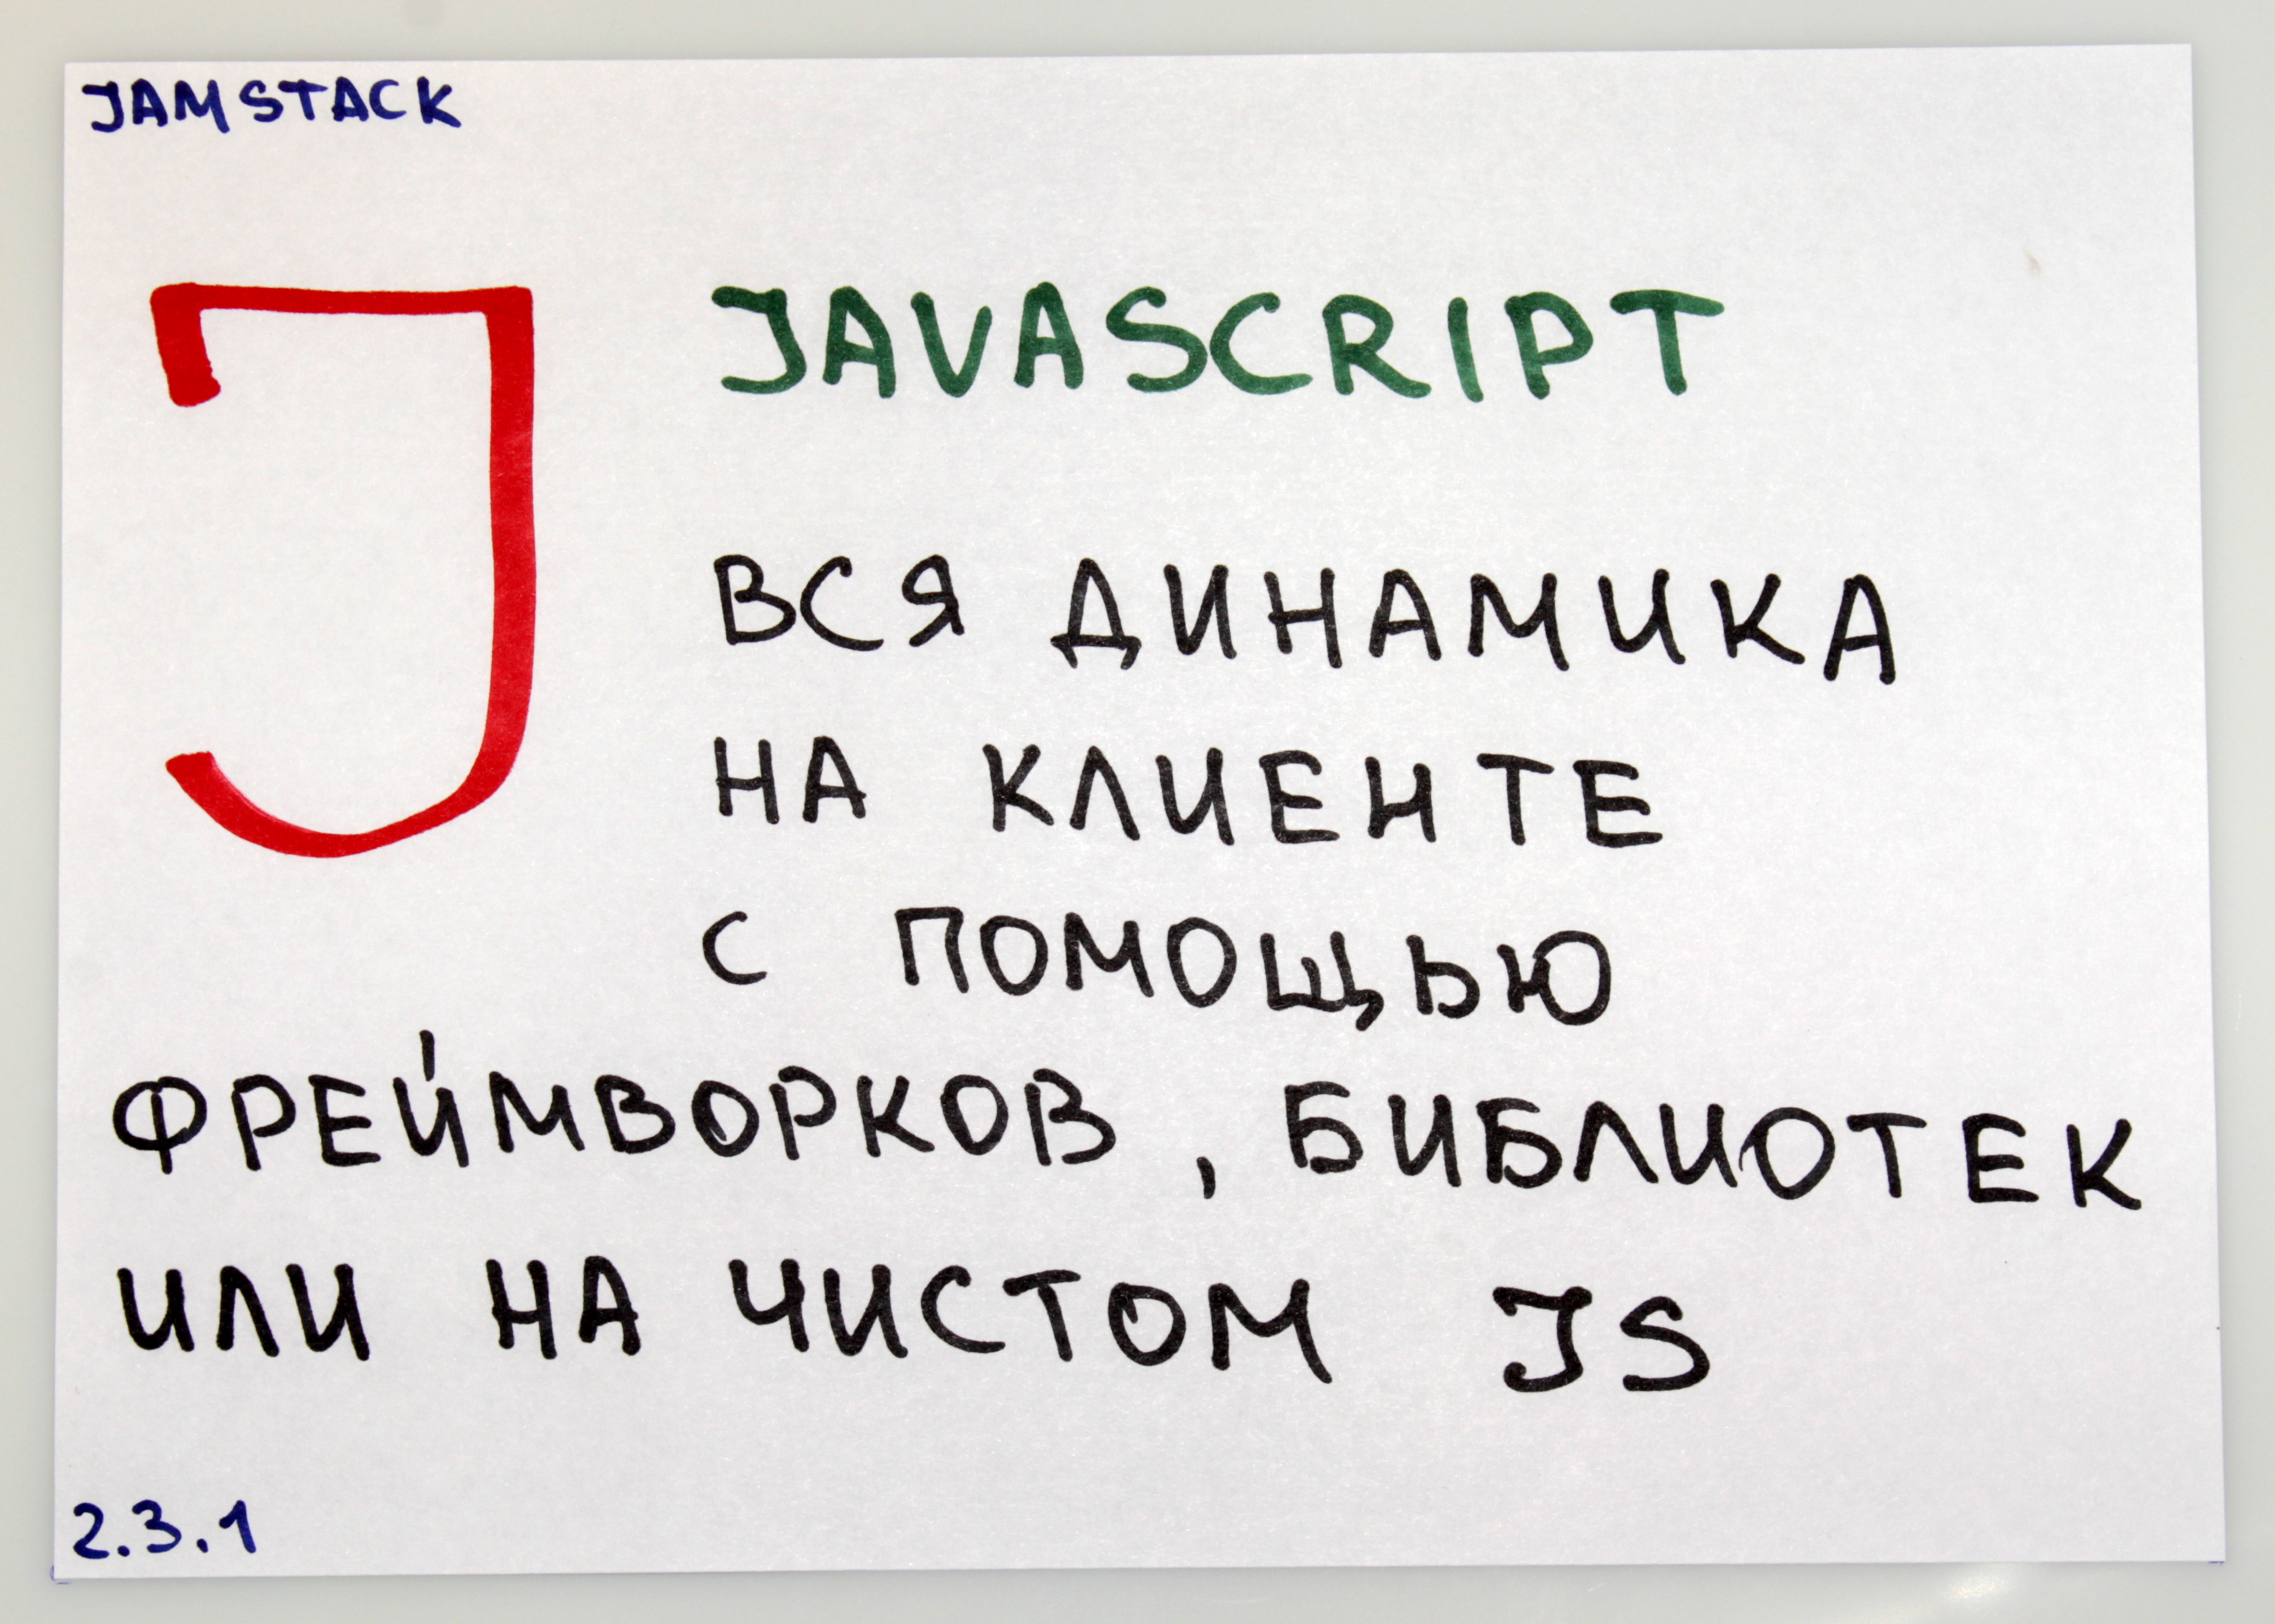 JAMSTACK
J
JAVASCRIPT
ВСЯ ДИНАМИКА
НА КЛИЕНТЕ
С ПОМОЩЬЮ
ФРЕЙМВОРКОВ, БИБЛИОТЕК
ИЛИ НА ЧИСТОМ JS
2.3.1